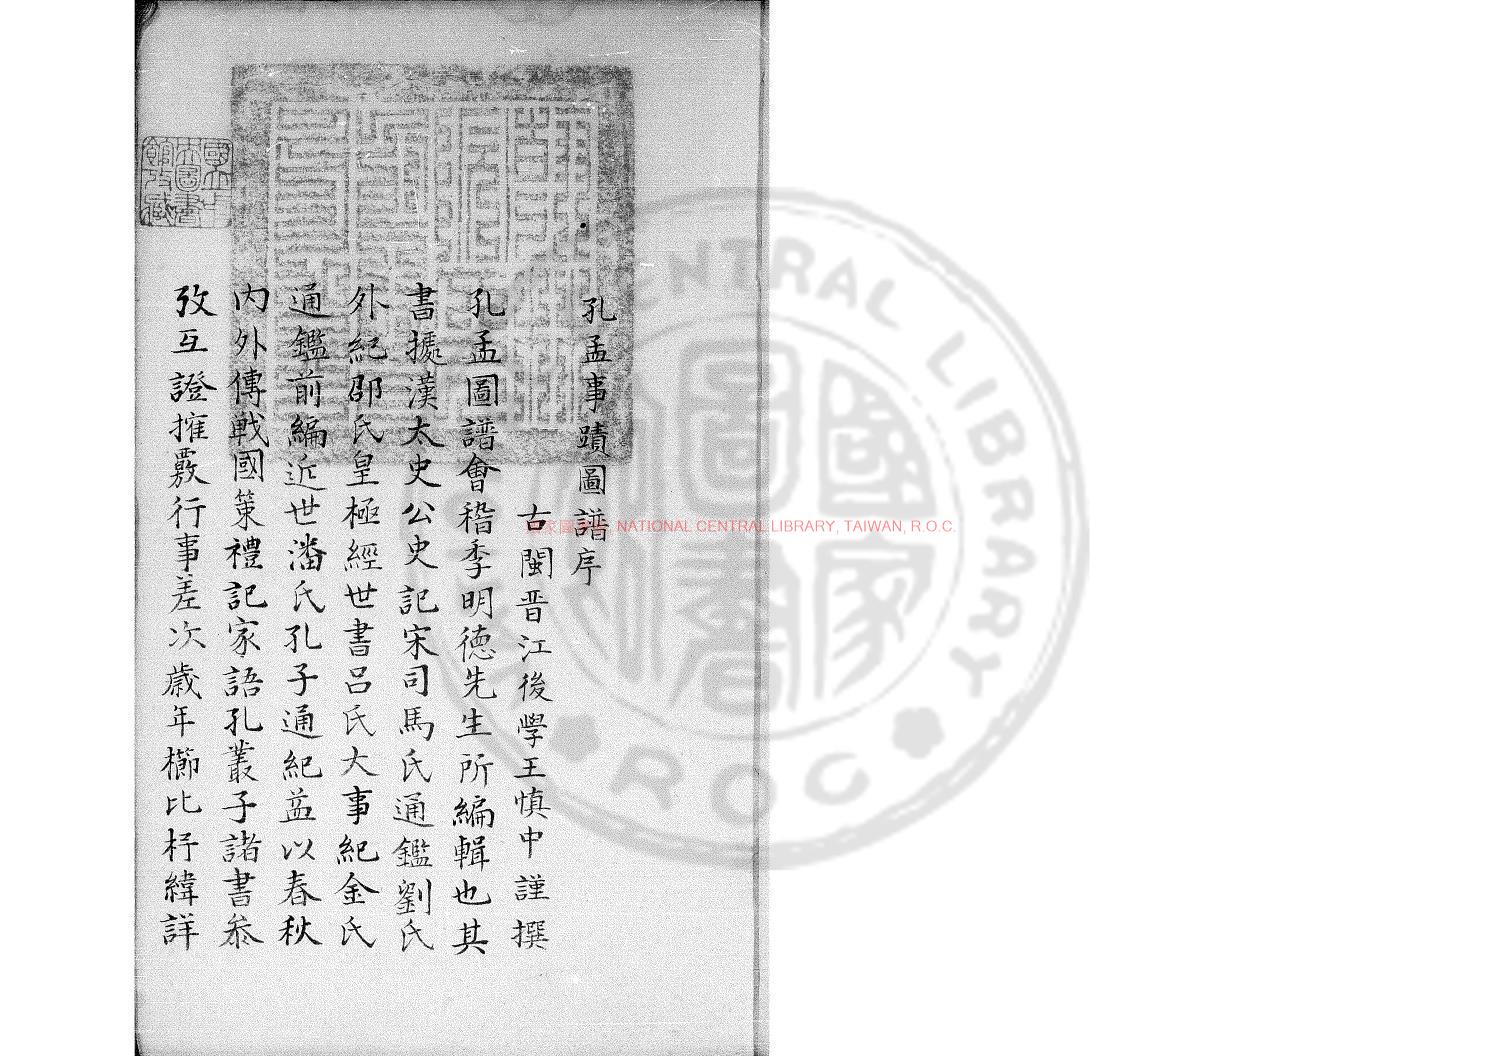 孔孟事蹟圖譜序
古閩晋江後學王慎中謹撰
孔孟圖譜會稽季明徳先生所編輯也其
書據漢太史公史記宋司馬氏通鑑劉氏
外紀邵氏皇極經世書呂氏大事紀金氏
通鑑前編近世潘氏孔子通紀葢以春秋
内外傳戰國策禮記家語孔叢子諸書叅
攷互證搉覈行事差次歲年櫛比杼緯詳
國立中央圖書館攷藏
國家圖書館, NATIONAL CENTRAL LIBRARY, TAIWAN, R.O.C.
CENTRAL LIBRARY
ROC